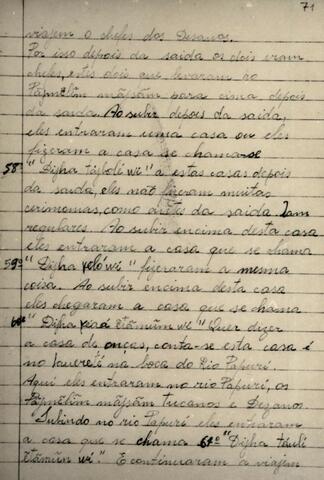 71
viagem o chefes dos Desanos.
Por isso depois da saida os dois eram
chefes, estes dois que levaram ao
Pãpmẽlĩm mãjsãm para cima depois
da saida. Ao subir depois da saida,
eles entraram uma casa ou eles
fizeram a casa se chama-se
58º "DiJha tãiboli wi" a estas casas depois
da saida, eles não fizeram muitas
cerimonias, como antes da saida. Iam
regulares. Ao subir encima desta casa
eles entraram a casa que se chama
59º "DiJha yoló wi" fizeraram a mesma
coisa. Ao subir encima desta casa
eles chegaram a casa que se chama
60º "DiJha yaá Diãmũm wi" Quer dizer
a casa de onças, conta-se esta casa é
no Jauereté na boca do Rio Papurí.
Aqui eles entraram no rio Papurí, os
Pãpmẽlĩm mãjsãm tucanos e Desanos.
Subindo no rio Papurí eles entraram
a casa que se chama 61º "DiJha
Diãmũm wi". E continuaram a viagem